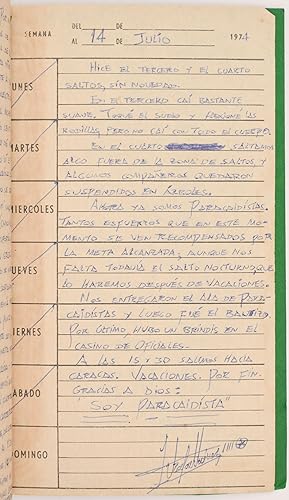 DEL DE
SEMANA
AL 14 DE JULIO 1974
LUNES
HICE EL TERCERO Y EL CUARTO
SALTOS, SIN NOVEDAD.
EN EL TERCERO CAÍ BASTANTE
SUAVE. TOQUÉ EL SUELO Y FLEXIONÉ LAS
RODILLAS PERO NO CAÍ CON TODO EL CUERPO.
MARTES
EN EL CUARTO SALTAMOS
ALGO FUERA DE LA ZONA DE SALTOS Y
ALGUNOS COMPAÑEROS QUEDARON
SUSPENDIDOS EN ÁRBOLES.
MIERCOLES
AHORA YA SOMOS PARACAIDISTAS.
TANTOS ESFUERZOS QUE EN ESTE MO-
MENTO SE VEN RECOMPENSADOS POR
LA META ALCANZADA, AUNQUE NOS
JUEVES
FALTA TODAVÍA EL SALTO NOCTURNO, QUE
LO HAREMOS DESPUÉS DE VACACIONES.
NOS ENTREGARON EL ALA DE PARA-
CAIDISTAS Y LUEGO FUÉ EL BAUTIZO.
VIERNES
POR ÚLTIMO HUBO UN BRINDIS EN EL
CASINO DE OFICIALES.
A LAS 15 Y 30 SALIMOS HACIA
CARACAS. VACACIONES. POR FIN.
SABADO
GRACIAS A DIOS:
"SOY PARACAIDISTA"
DOMINGO